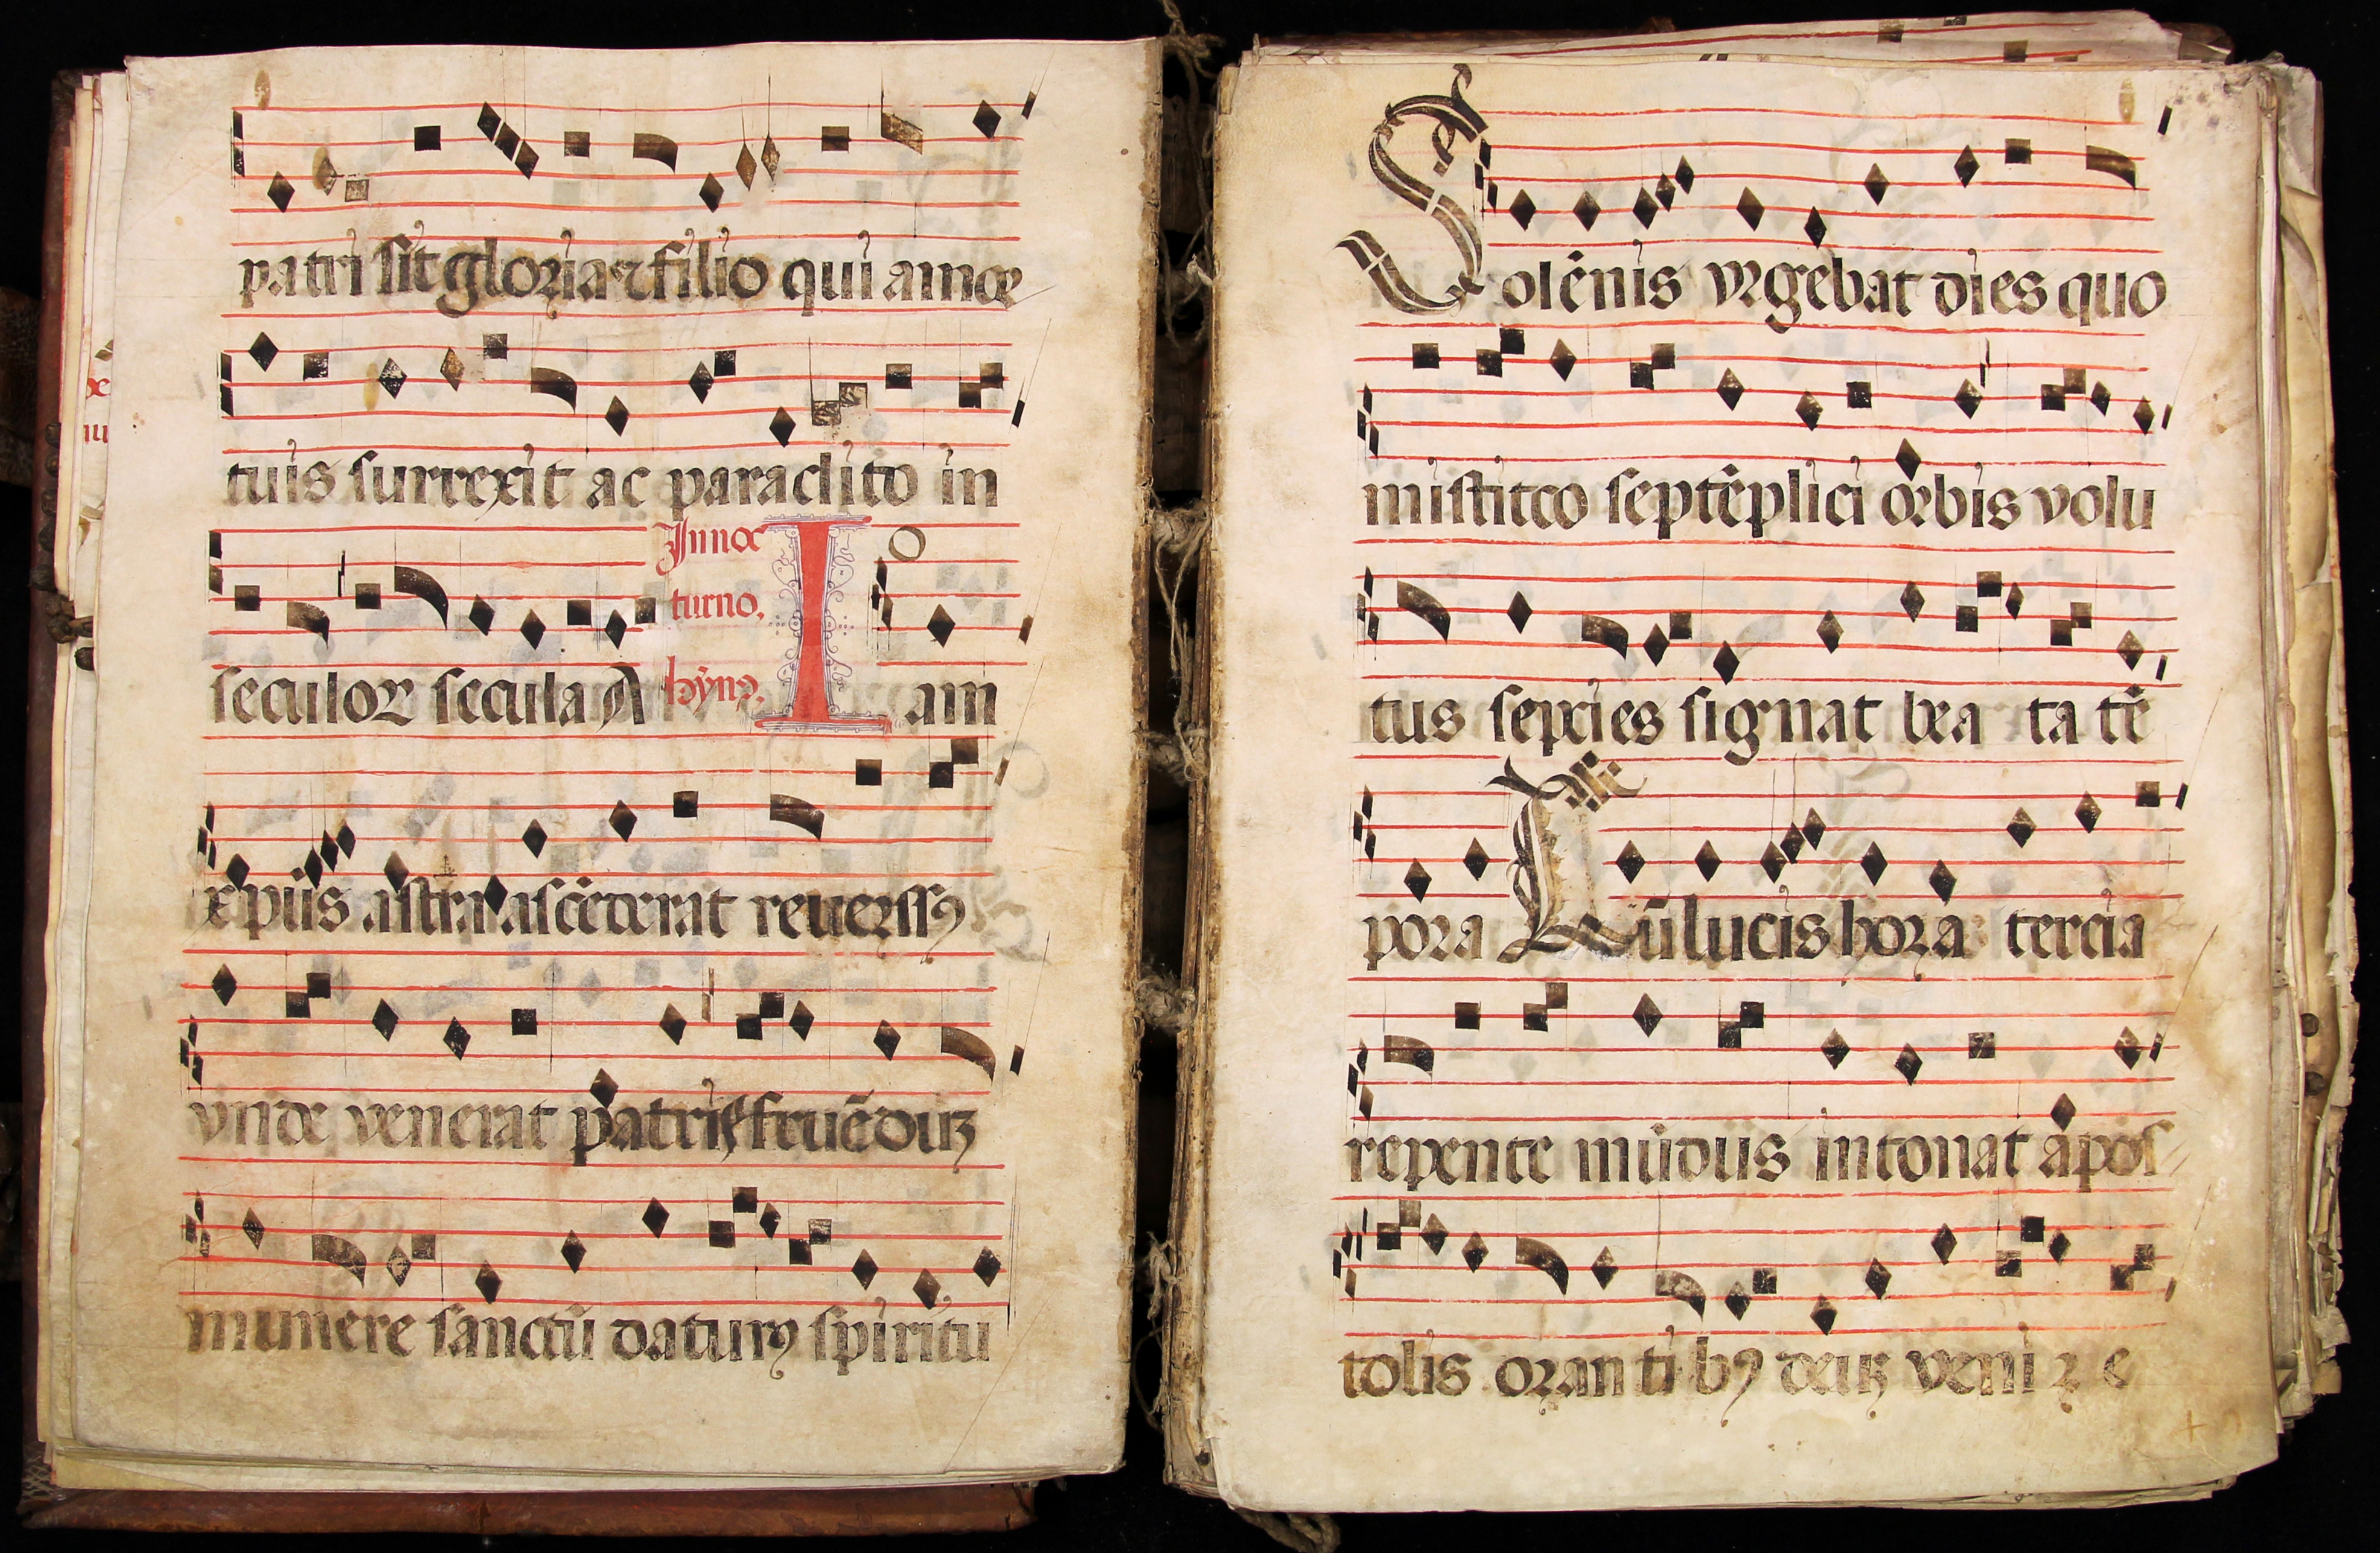 patri sit gloria ⁊ filio qui a mor
tuis surrexit ac paraclito in
seculoꝝ secula A
In noc
turno.
hỹnꝰ.
Iam
xp̃us astra ascẽderat reuersꝰ
vnde venerat patris fruẽduȝ
munere sanctũ daturꝰ spiritu
Solẽnis vrgebat dies quo
mistico septẽplici orbis volu
tus septies signat bea ta tẽ
pora Cũ lucis hora tercia
repente mũdus intonat apos
tolis oran ti bꝰ deuȝ veni ꝛ e